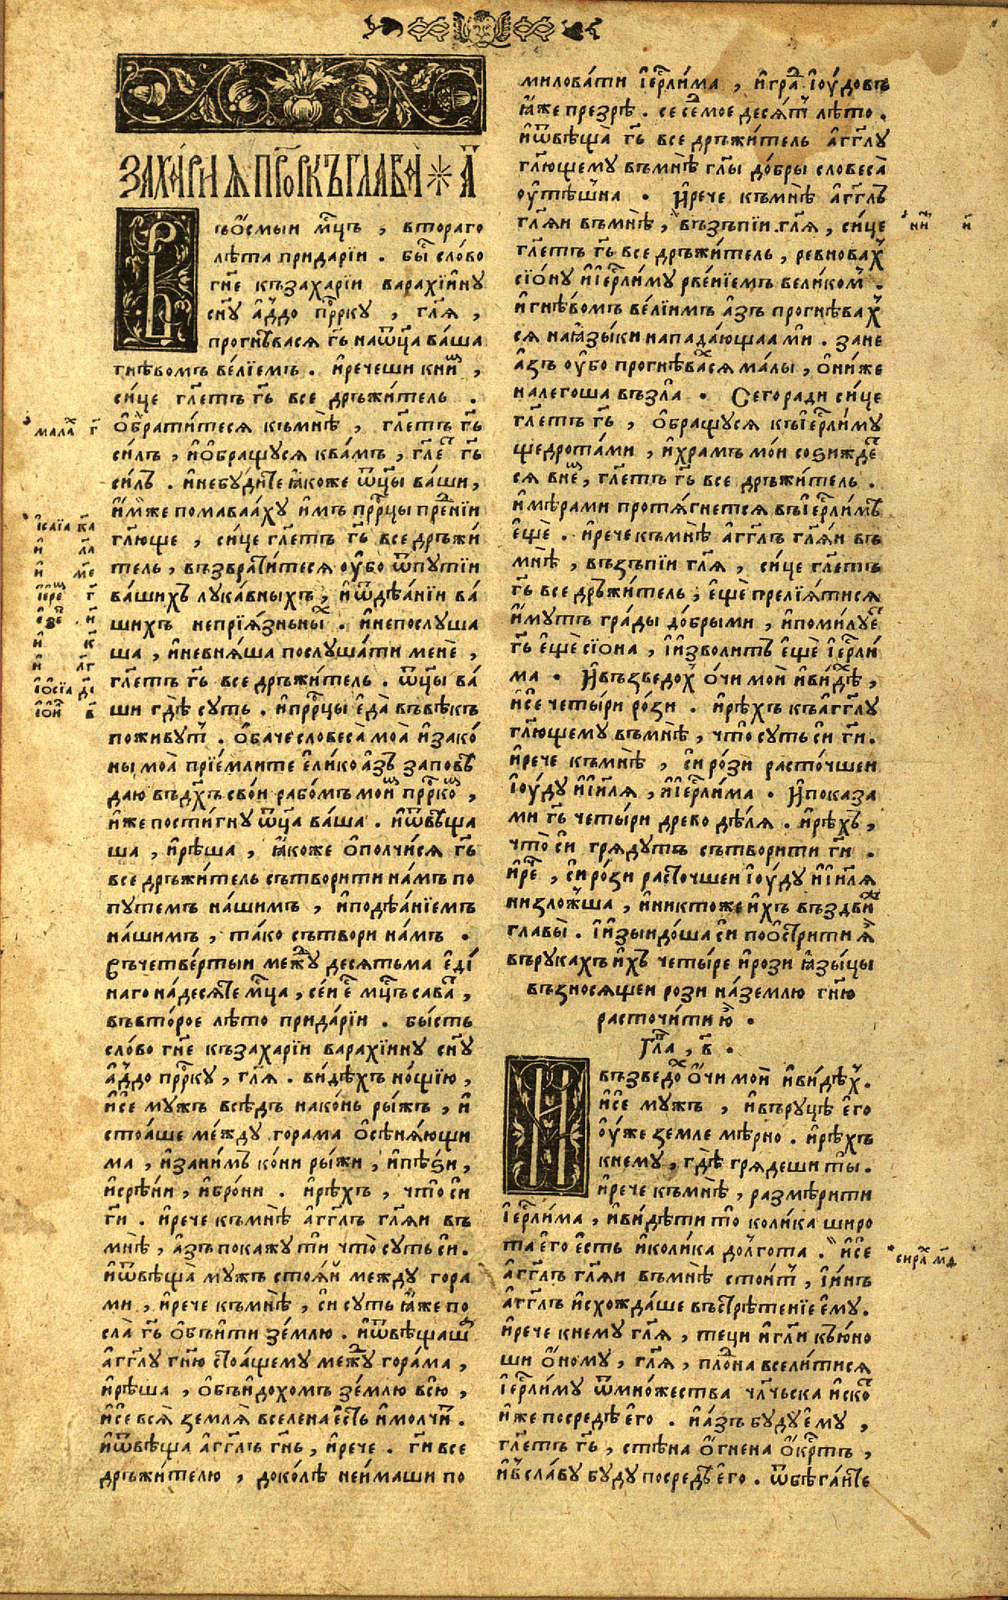 ЗАХА́РИѦ ПРⷪ҇РКЪ ГЛАВА̀ * А҃
В
сьѻ҆смыи мⷭ҇ць , втораго
лѣта придарїи . бы́ сло́во
гн҃е къзахарїи варахїину
сн҃у а҆ддо прⷪ҇рку , гл҃ѧ ,
прогнѣвасѧ гь҃ наѿц҃а ва́ша
гнѣвомъ ве́лїемъ . и҆речеши книⷨ ,
си́це гл҃етъ гь҃ все дръжи́тель .
ѻ҆брати́тесѧ къмнѣ̀ , гл҃етъ гь҃
си́лъ , и҆ѻ҆бращусѧ квамъ , гл҃е гь҃
си́лъ . и҆небу́дѣте ꙗ҆коже ѿц҃ы ва́ши ,
и҆́мже помаваа́ху и҆мъ прⷪ҇рцы пре́нїи
гл҃юще , си́це гл҃етъ гь҃ все дръжи́
тель , възврати́тесѧ ѹ҆бо ѿпутїи
ва́шихъ лука́вныхъ , и҆ѿдѣа́нїи ва́
шихъ непрїѧ́зныⷯ . и҆непослуша
ша , и҆невнѧ́ша послу́шати менѐ ,
гл҃етъ гь҃ все дръжи́тель . ѿц҃ы ва́
ши гдѣ̀ суть . и҆прⷪ҇рцы е҆да̀ въвѣкъ
поживу́тⸯ . ѻ҆баче словеса̀ моа̀ и҆зако́
ны моа̀ прїе́млите е҆лико а҆зъ заповѣ
даю въдс҃ѣ свое́мъ рабо́мъ мои́ⷨ прⷪ҇ркоⷨ ,
и҆́же пости́гну ѿц҃а ва́ша . и҆ѿвѣща
ша , и҆рѣ́ша , ꙗ҆коже ѻ҆полчи́сѧ гь҃
все дръжи́тель сътворити на́мъ по
путемъ на́шимъ , и҆подѣа́нїемъ
на́шимъ , та́ко сътвори на́мъ .
Въчетве́ртыи меⷤу десѧтьма е҆ди́
наго на́десѧте мⷭ҇ца , се́и е҆ мⷭ҇ць сава́ⷮ ,
въвто́рое лѣто прида́рїи . бы́сть
сло́во гн҃е къзахарїи варахїину сн҃у
а҆ддо прⷪ҇рку , гл҃ѧ . ви́дѣхъ но́щїю ,
и҆се мужъ всѣдъ нако́нь ры́жъ , и҆
стоа́ше ме́жду горама ѻ҆сѣнѧ́ющи
ма , и҆зани́мъ ко́ни ры́жи , и҆пѣ́ѕи ,
и҆срѣ́ни , и҆бро́ни . и҆рѣ́хъ , что̀ си
ги҃ . и҆рече къмнѣ̀ а҆гг҃лъ гл҃ѧи въ
мнѣ̀ , а҆зъ покажу̀ ти что̀ суть сѝ .
и҆ѿвѣща̀ мужъ стоѧ́и между гора
ми , и҆рече къмнѣ̀ , сѝ суть ꙗ҆же по
сла̀ гь҃ ѻ҆бъи́ти зе́млю . и҆ѿвѣщаⷲ
а҆гг҃лу гн҃ю стоа́щему меⷤу гора́ма ,
и҆рѣ́ша , ѻ҆бъи҆до́хомъ зе́млю всю̀ ,
и҆се всѧ̀ землѧ̀ вселена е҆сть и҆молчи́т .
и҆ѿвѣща а҆гг҃лъ гн҃ь , и҆рече . ги҃ все
дръжи́телю , доко́лѣ неи́маши по
мала́ⷯ г҃
и҆са́їа ка҃
и҆ ла҃
и҆ ме҃
і҆ере́ⷨ г҃
е҆зеⷦ . и҃
и҆ к҃
и҆ лг҃
і҆ѻсїа ді҃
і҆ѻи́ⷧ в҃
милова́ти і҆ерⷭ҇ли́ма , и҆граⷣ і҆оу́довъ
ꙗ҆́же презрѣ̀ . се сеⷣмое десѧ́тⸯ лѣто .
и҆ѿвѣща̀ гь҃ все дръжи́тель а҆гг҃лу
гл҃ющему въмнѣ̀ гл҃ы до́бры словеса̀
ѹ҆тѣ́шна . И҆рече къмнѣ̀ а҆гг҃лъ
гл҃ѧи въмнѣ̀ , възъпїи гл҃ѧ , си́це
гл҃етъ гь҃ все дръжи́тель , ревноваⷯ
сїо́ну и҆і҆ерⷭ҇ли́му рве́нїемъ великоⷨ .
и҆гнѣ́вомъ ве́лїимъ а҆зъ прогнѣваⷯ
сѧ наꙗ҆зы́ки напада́ющаа ми . зане
а҆зъ ѹ҆бо прогнѣ́ваⷯсѧ ма́лы , ѻ҆ни́же
налегоша възла̀ . Сегоради си́це
гл҃етъ гь҃ , ѻ҆бращусѧ къі҆ерⷭ҇ли́му
щедрота́ми , и҆храмъ мо́и соѕи́жде
сѧ вне́ⷨ , гл҃етъ гь҃ все дръжи́тель .
и҆мѣ́рами протѧ́гнетсѧ въі҆ерⷭ҇ли́мѣ
е҆щѐ . и҆рече къмнѣ̀ а҆гг҃лъ гл҃ѧи въ
мнѣ̀ , възъпїи гл҃ѧ , си́це гл҃етъ
гь҃ все дръжи́тель , е҆щѐ прелїѧ́тисѧ
и҆́мутъ гра́ды до́брыми , и҆поми́луеⷮ
гь҃ е҆щѐ сїо́на , і҆изволитъ е҆щѐ і҆ерⷭ҇ли
ма . И҆възведоⷯ ѻ҆́чи мои̂ и҆ви́дѣⷯ ,
и҆се четы́ри ро́зи . и҆рѣ́хъ къа҆гг҃лу
гл҃ющему въмнѣ̀ , что̀ суть си ги҃ .
и҆рече къмнѣ̀ , си ро́зи расто́чшеи
і҆оу́ду и҆і҆и҃лѧ , и҆і҆ерⷭ҇ли́ма . И҆показа
ми гь҃ четы́ри древо дѣ́лѧ . и҆рѣ́хъ ,
что̀ си грѧду́тъ сътвори́ти ги҃ .
и҆ре́ⷱ , си ро́зи расто́чшеи і҆оу́ду и҆і҆и҃лѧ
низло́жша , и҆никтоже и҆хъ въздви́ⷤ
главы̀ . і҆изыидо́ша си поѻ҆стри́ти ѧ҆̀
върука́хъ и҆хъ четы́ре и҆рози ꙗ҆зы́цы
възносѧ́щеи рози на́землю гн҃ю
расточи́ти ю҆̀ .
Гла , в҃ .
И
възведоⷯ ѻ҆́чи мои̂ и҆ви́дѣⷯ .
и҆се мужъ , и҆въруцѣ̀ е҆го
ѹ҆́же земле мѣрно . и҆рѣ́хъ
кнему , гдѣ̀ грѧде́ши ты̀ .
и҆рече къмнѣ̀ , размѣ́рити
і҆ерⷭ҇ли́ма , и҆ви́дѣти то̀ коли́ка широ
та̀ е҆го е҆́сть и҆коли́ка долгота̀ . и҆се
а҆гг҃лъ гл҃ѧи въмнѣ̀ стои́тⸯ , і҆и́нъ
а҆гг҃лъ и҆схожда́ше въстрѣ́тенїе е҆му .
и҆рече кнему гл҃ѧ , теци и҆гл҃и къю́но
ши ѻ҆ному , гл҃ѧ , плоⷣна вселитисѧ
і҆ерⷭ҇ли́му ѿмно́жества чл҃ческа и҆скоⷮ
и҆́же посредѣ̀ е҆го . и҆а́зъ бу́ду е҆му ,
гл҃етъ гь҃ , стѣна ѻ҆́гнена ѻ҆́крⷭ҇тъ ,
и҆въсла́ву бу́ду посредѣ̀ е҆го . ѽбѣга́ите
и҃
сираⷯ мд҃